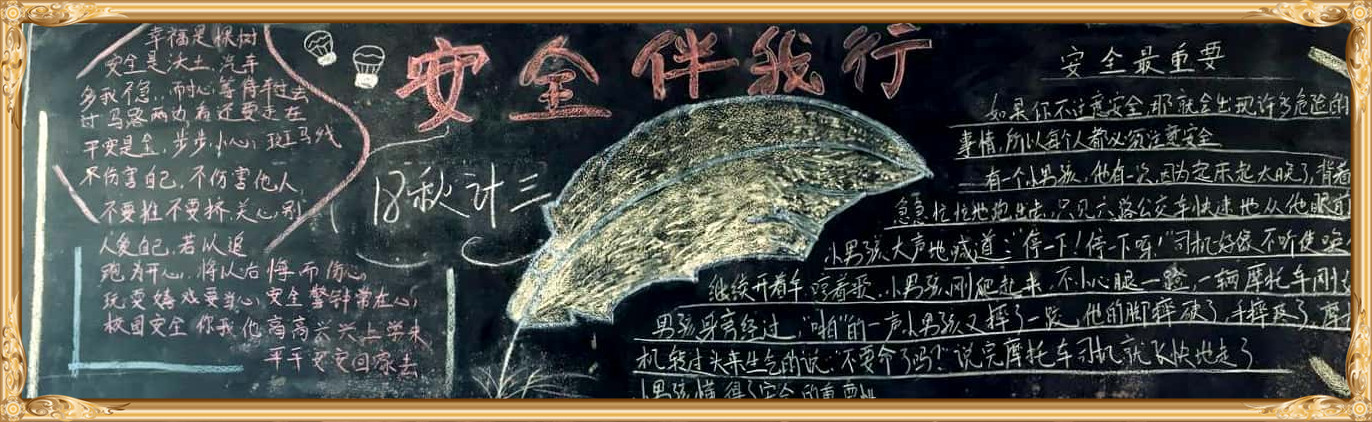 安全伴我行
18秋计三
幸福是棵树
安全是沃土,汽车
多我不急,耐心等待车过去
过马路两边看还要走在
平安是全,步步小心,斑马线
不伤害自己,不伤害他人,
不要推不要挤,关心别
人爱自己,若以追
跑为开心,将以后悔而伤心,
玩耍嬉戏要当心,安全警钟常在心,
校园安全你我他高高兴兴上学来,
平平安安回家去
安全最重要
如果你不注意安全,那就会出现许多危险的
事情,所以每个人都必须注意安全
有一个小男孩,他有一次因为起床起太晚了,背着
急急忙忙地跑出去,只见六路公交车快速地从他眼前
小男孩大声地喊道:“停一下!停一下呀!”司机好像不听使唤
继续开着车,哼着歌,小男孩刚爬起来,不小心腿一蹬,一辆摩托车刚
男孩身旁经过,“啪”的一声小男孩又摔了一跤,他的脚摔破了,手摔
机转过头来生气的说:“不要命了吗?”说完摩托车司机就飞快地走了
小男孩懂得了安全的重要